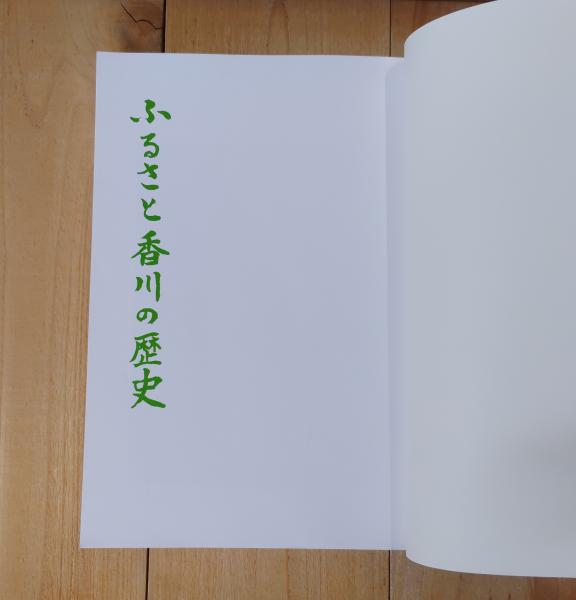 ふるさと香川の歴史